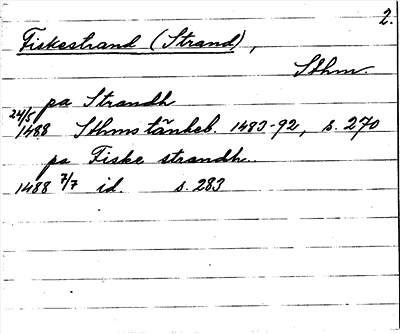 2.
Fiskestrand (Strand),
Sthm.
pa Strandh
24/5 1488 Sthms tänkeb. 1483-92, s. 270
pa Fiske strandh.
1488 7/7 id. s. 283